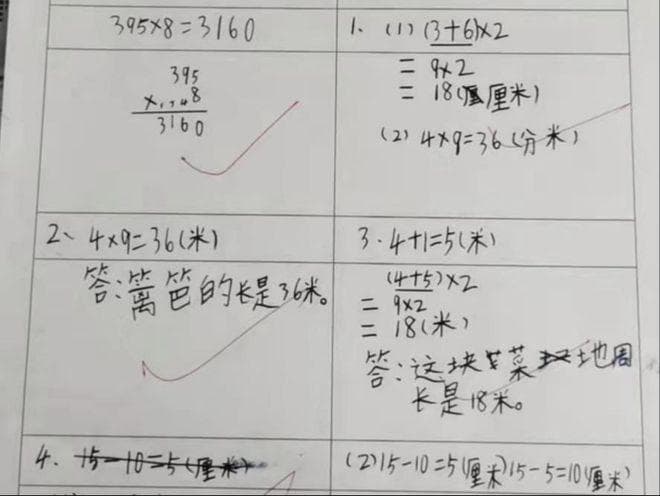 395×8=3160
395
×  8
3160
1、(1)(3+6)×2
=9×2
=18(厘米)
(2)4×9=36(分米)
2、4×9=36(米)
答:篱笆的长是36米。
3.4+1=5(米)
(4+5)×2
=9×2
=18(米)
答:这块菜地周
长是18米。
4.15-10=5(厘米)
(2)15-10=5(厘米)15-5=10(厘米)